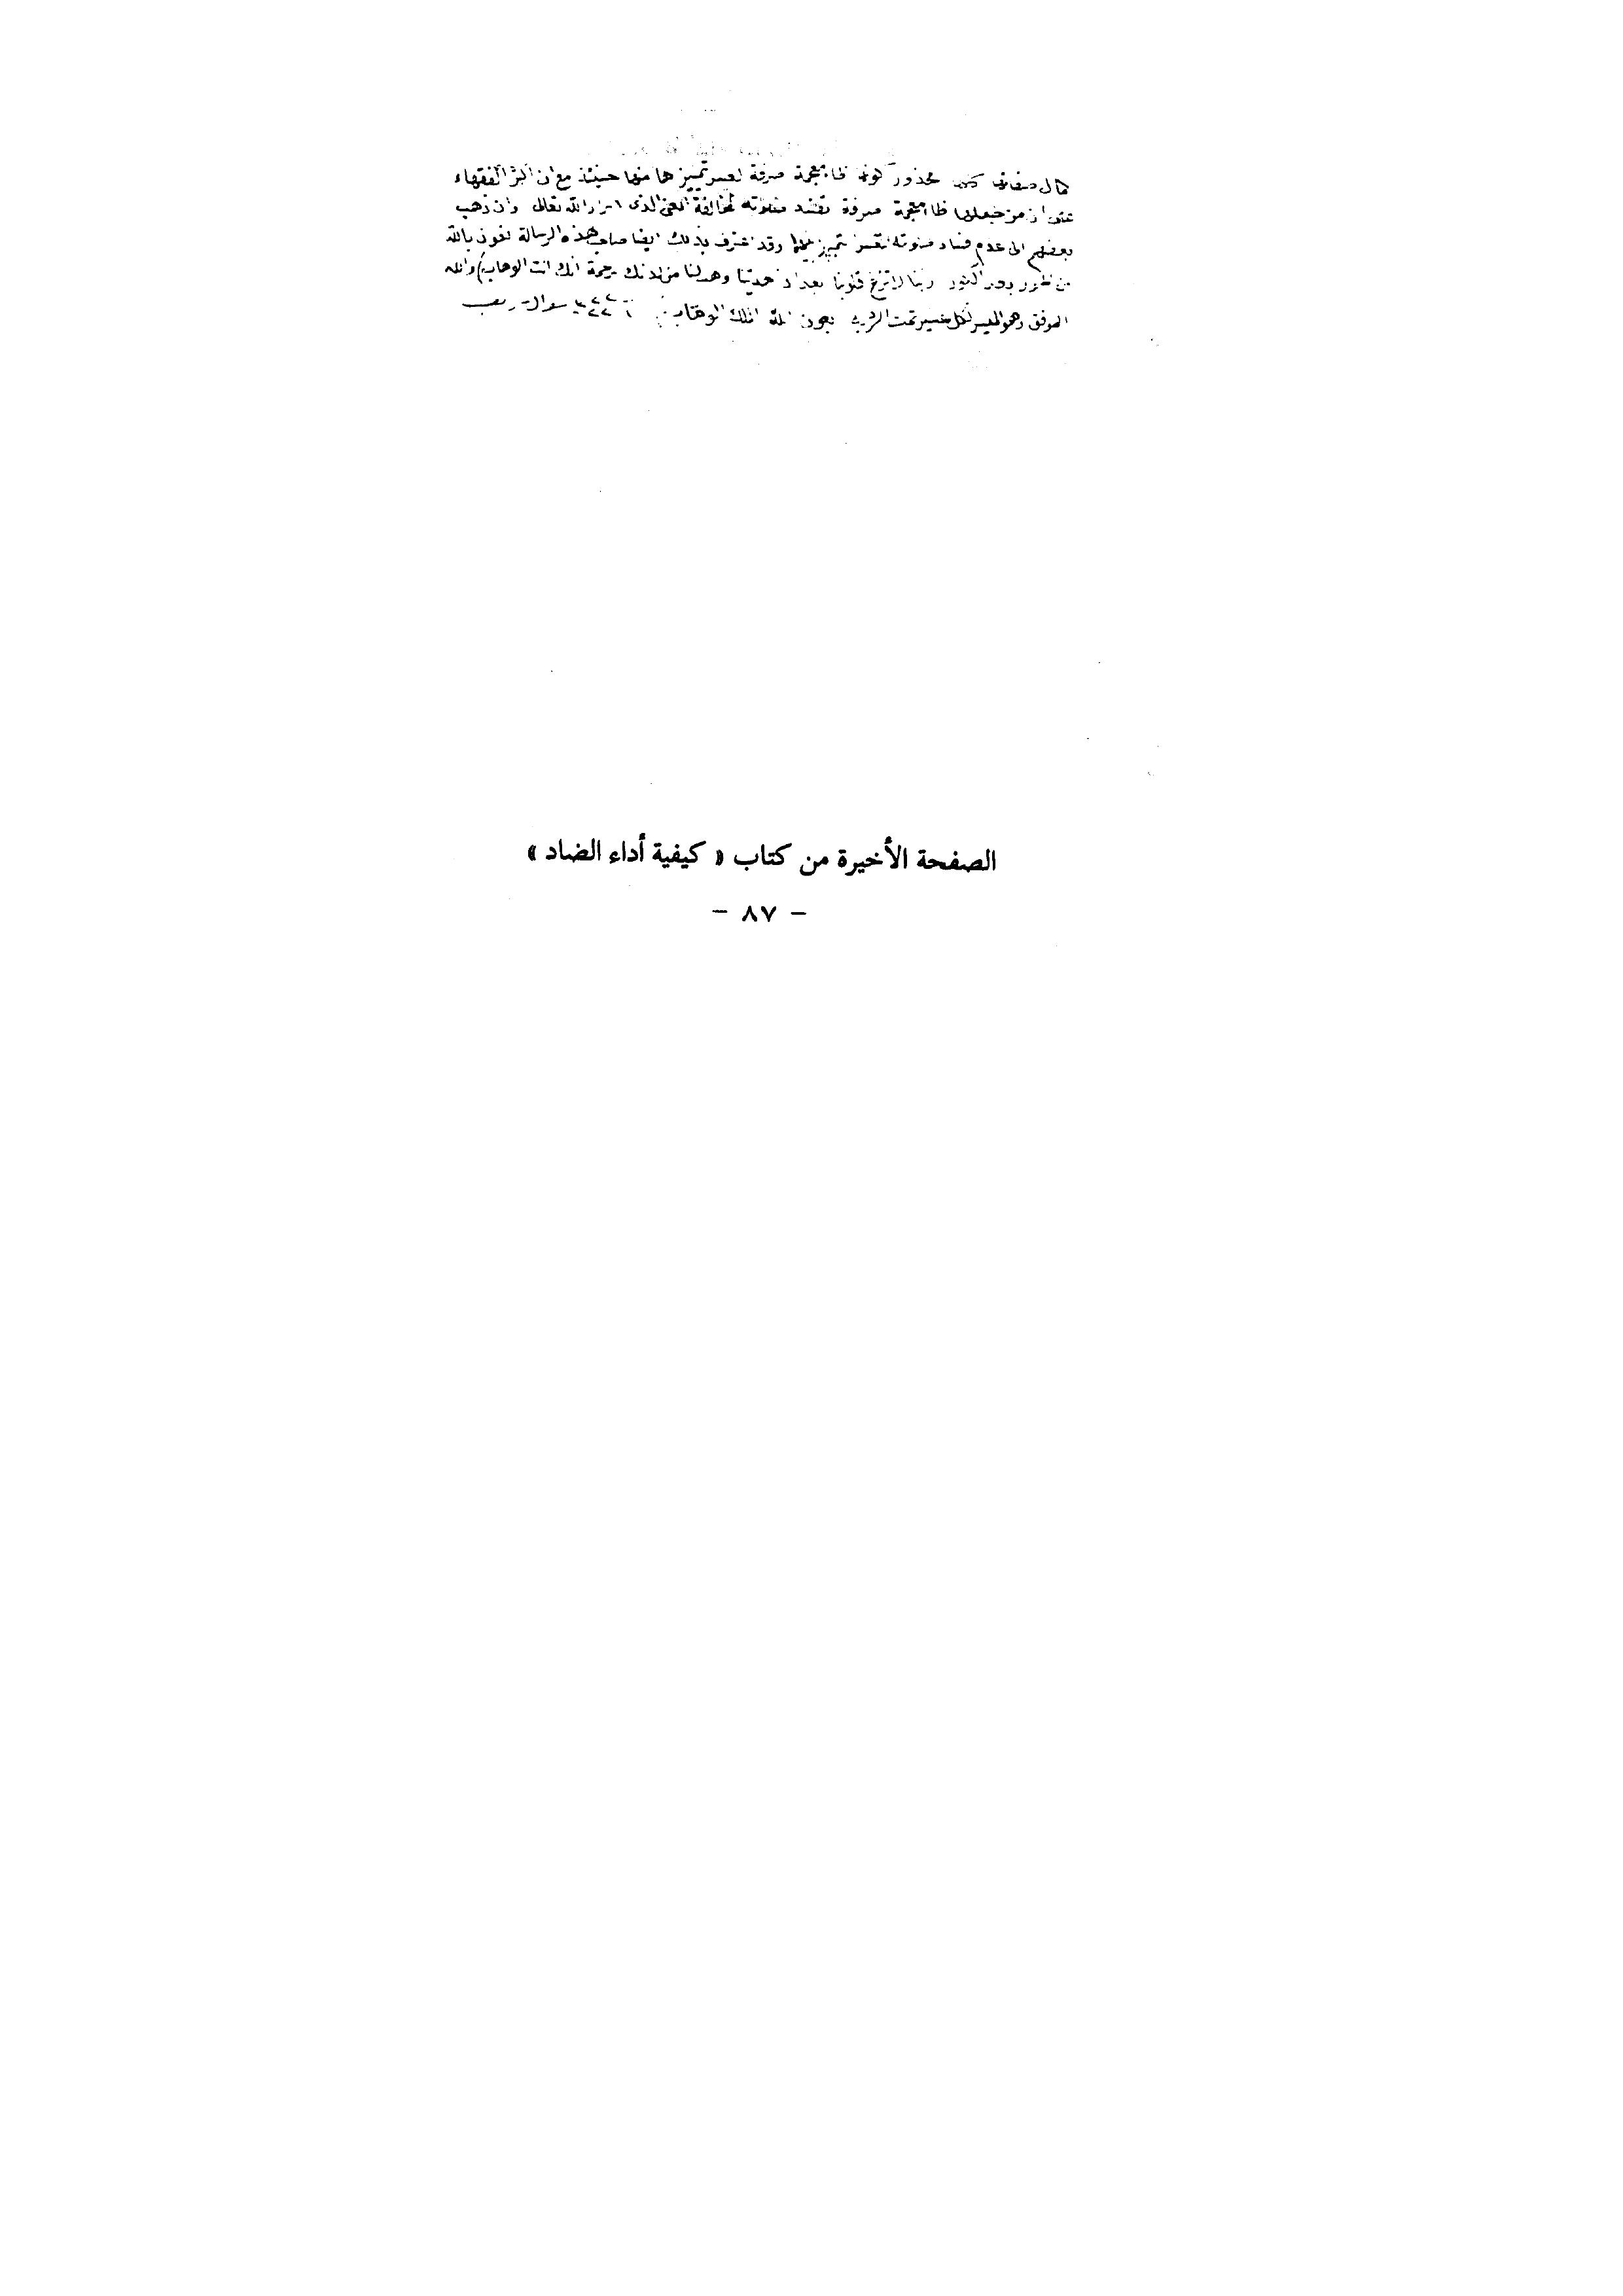 محذور كونه ظاء معجمة صرفة لعسر تميزها منها حينئذ مع ان اكثر الفقهاء
ان من جعلها ظاء معجمة صرفة تفسد صلوته لمخالفة المعنى الذى اراد الله تعالى وان ذهب
بعضهم الى عدم فساد صلوته لتعسر تمييز وقد اعترف بذلك ايضا صاحب هذه الرسالة نعوذ بالله
من ربنا لا تزغ قلوبنا بعد اذ هديتنا وهب لنا من لدنك رحمة انك انت الوهاب والله
الموفق وهو الميسر لكل عسير تمت بعون الملك الوهاب
الصفحة الأخيرة من كتاب « كيفية أداء الضاد »
– ٨٧ –